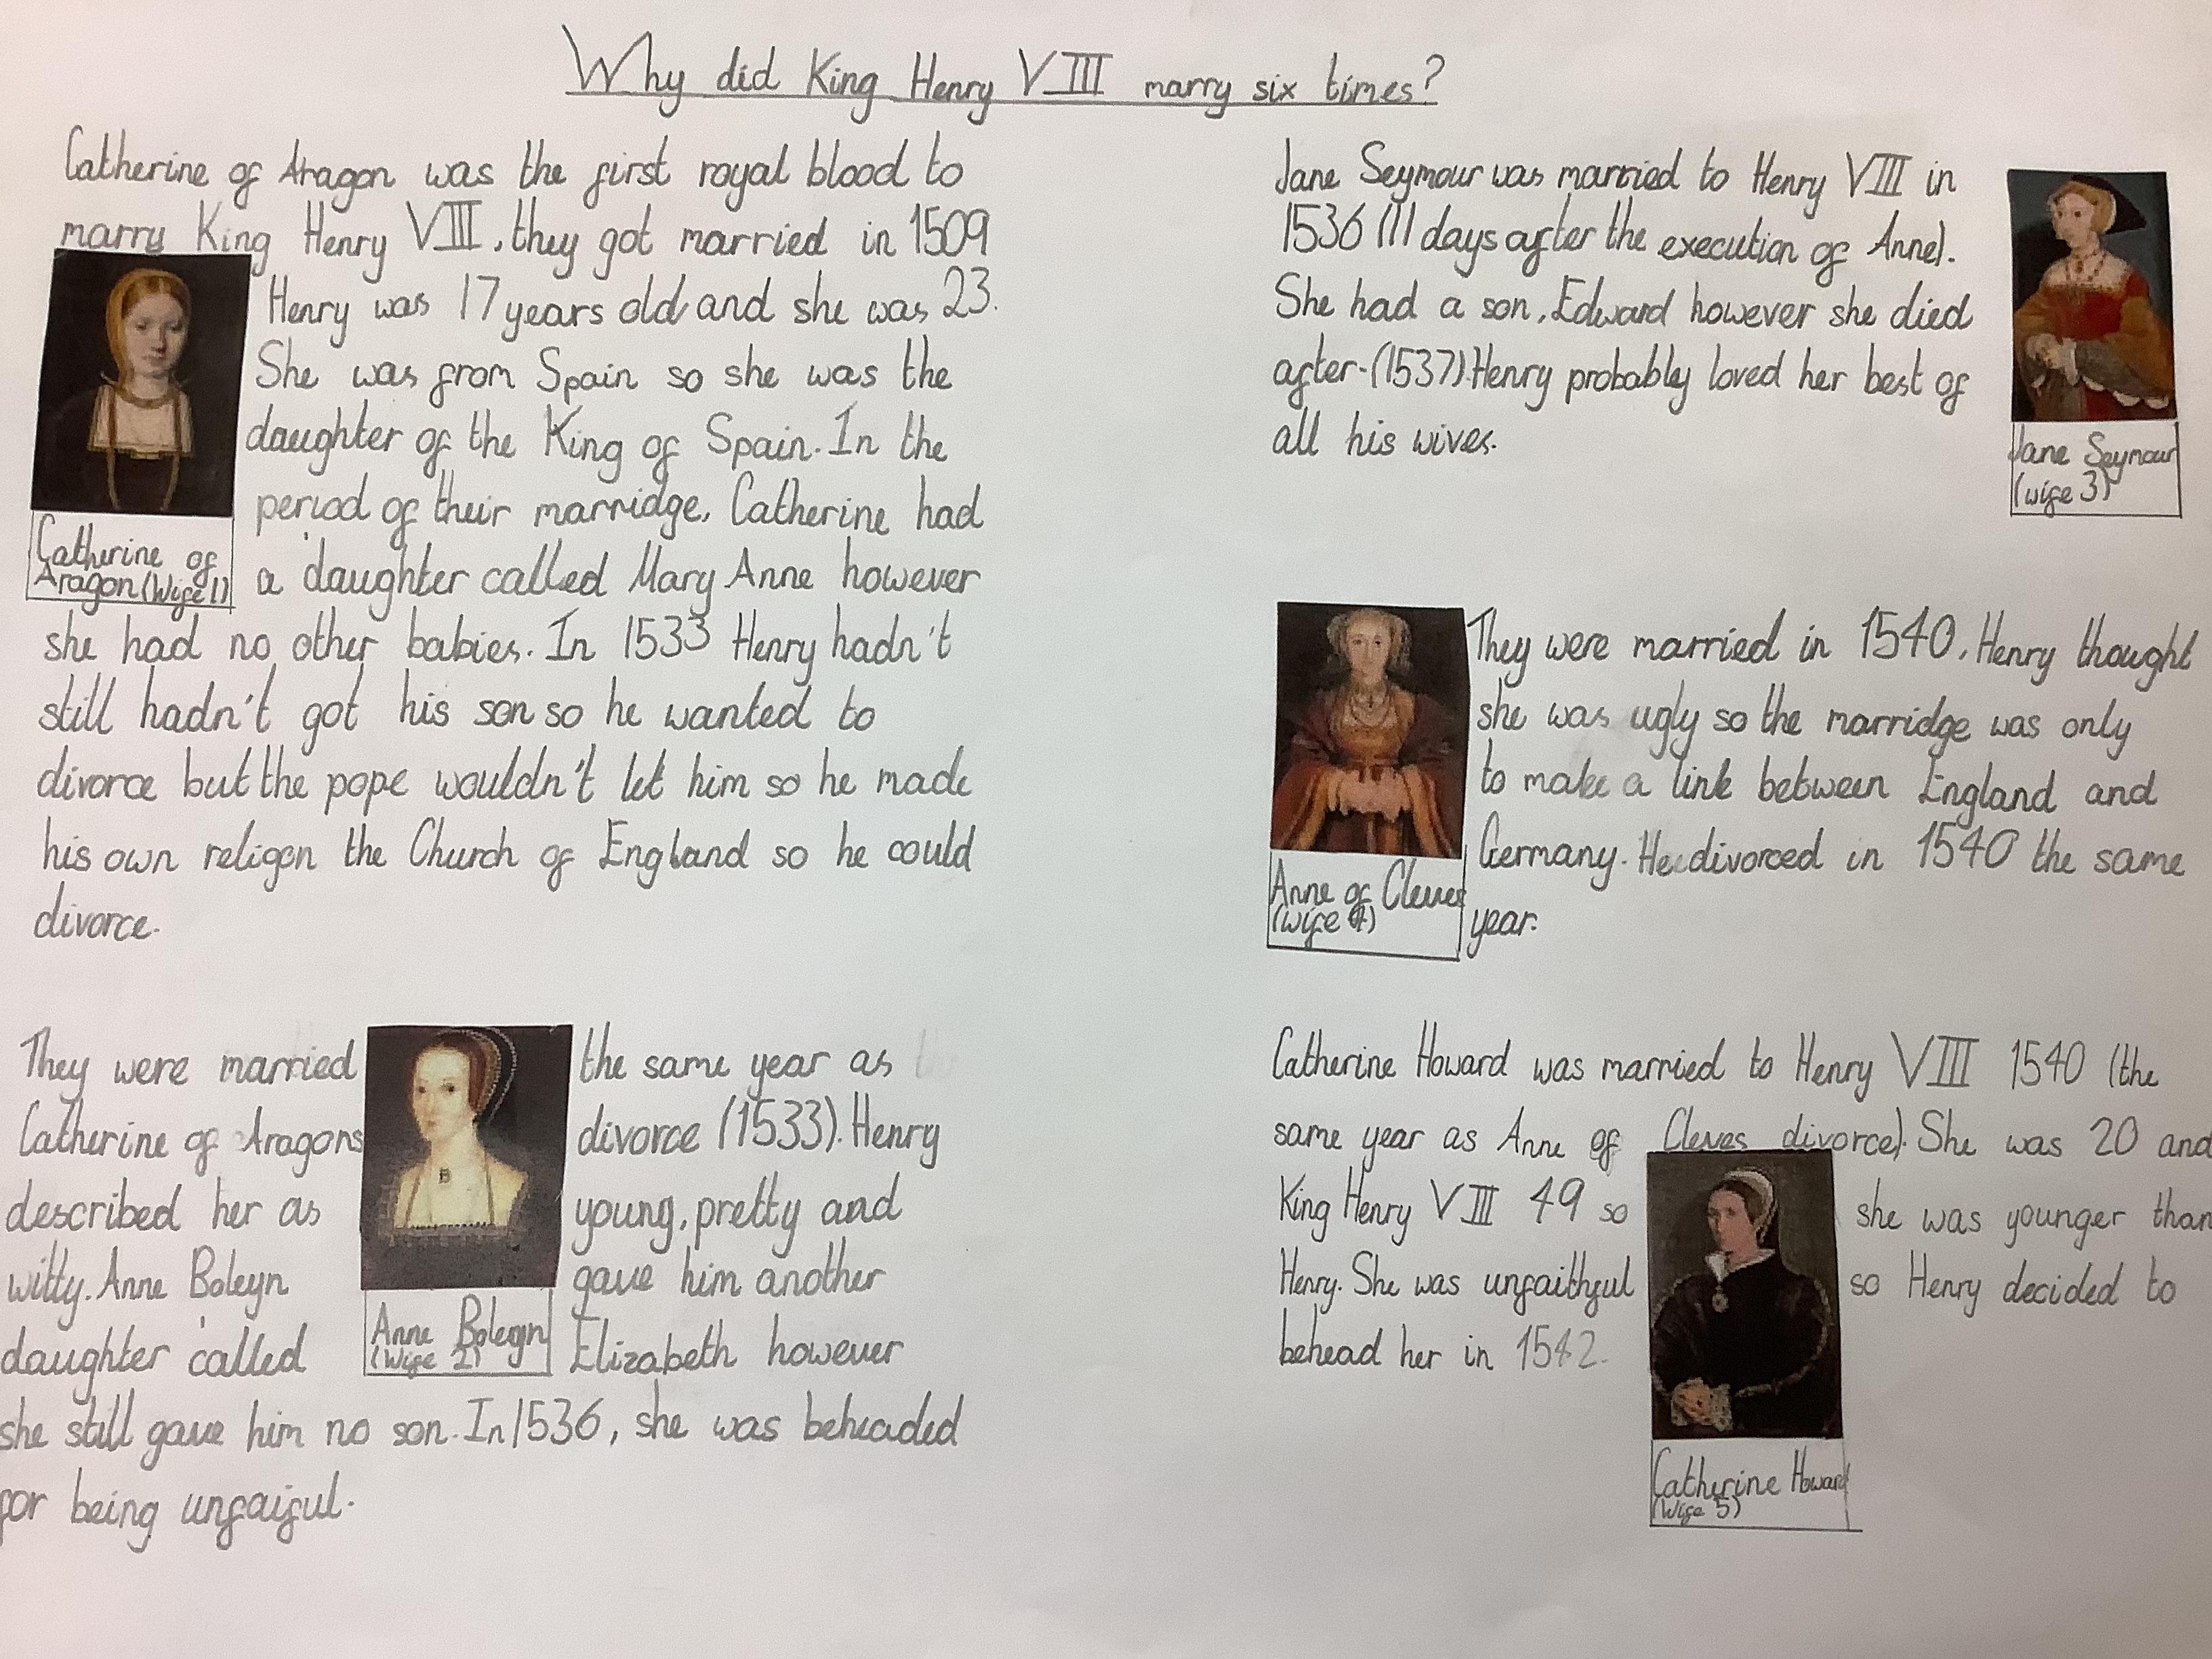 Why did King Henry VIII marry six times?
Catherine of Aragon was the first royal blood to
marry King Henry VIII, they got married in 1509
Henry was 17 years old and she was 23.
She was from Spain so she was the
daughter of the King of Spain. In the
period of their marridge, Catherine had
a daughter called Mary Anne however
she had no other babies. In 1533 Henry hadn't
still hadn't got his son so he wanted to
divorce but the pope wouldn't let him so he made
his own religon the Church of England so he could
divorce.
Catherine of
Aragon (Wife 1)
They were married the same year as
Catherine of Aragons divorce (1533). Henry
described her as young, pretty and
witty. Anne Boleyn gave him another
daughter called Elizabeth however
she still gave him no son. In 1536, she was beheaded
for being unfaiful.
Anne Boleyn
(Wife 2)
Jane Seymour was married to Henry VIII in
1536 (11 days after the execution of Anne).
She had a son, Edward however she died
after-(1537). Henry probably loved her best of
all his wives.
Jane Seymour
(wife 3)
They were married in 1540, Henry thought
she was ugly so the marridge was only
to make a link between England and
Germany. He divorced in 1540 the same
year.
Anne of Cleves
(Wife 4)
Catherine Howard was married to Henry VIII 1540 (the
same year as Anne of Cleves divorce). She was 20 and
King Henry VIII 49 so she was younger than
Henry. She was unfaithful so Henry decided to
behead her in 1542.
Catherine Howard
(Wife 5)